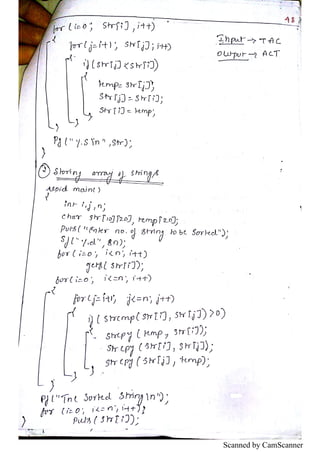 98
for (i=0; str[i], i++)
Input → TAC
Output → ACT
{
for(j=i+1; str[j]; i++)
{
if(str[j] < str[i])
{
temp = str[j];
str[j] = str[i];
str[i] = temp;
}
}
}
Pf ("%s\n", str);
}
③ Storing array of strings
void main()
{
int i,j,n;
char str[10][20], temp[20];
puts("Enter no. of string to be sorted");
Sf("%d", &n);
for (i=0; i<n; i++)
gets(str[i]);
for(i=0; i<=n; i++)
{
for(j=i+1; j<=n; j++)
{
if (strcmp(str[i], str[j])>0)
{
strcpy (temp, str[i]);
strcpy (str[i], str[j]);
strcpy (str[j], temp);
}
}
}
Pf("The Sorted String\n");
for (i=0; i<=n; i++)
puts(str[i]);
}
Scanned by CamScanner